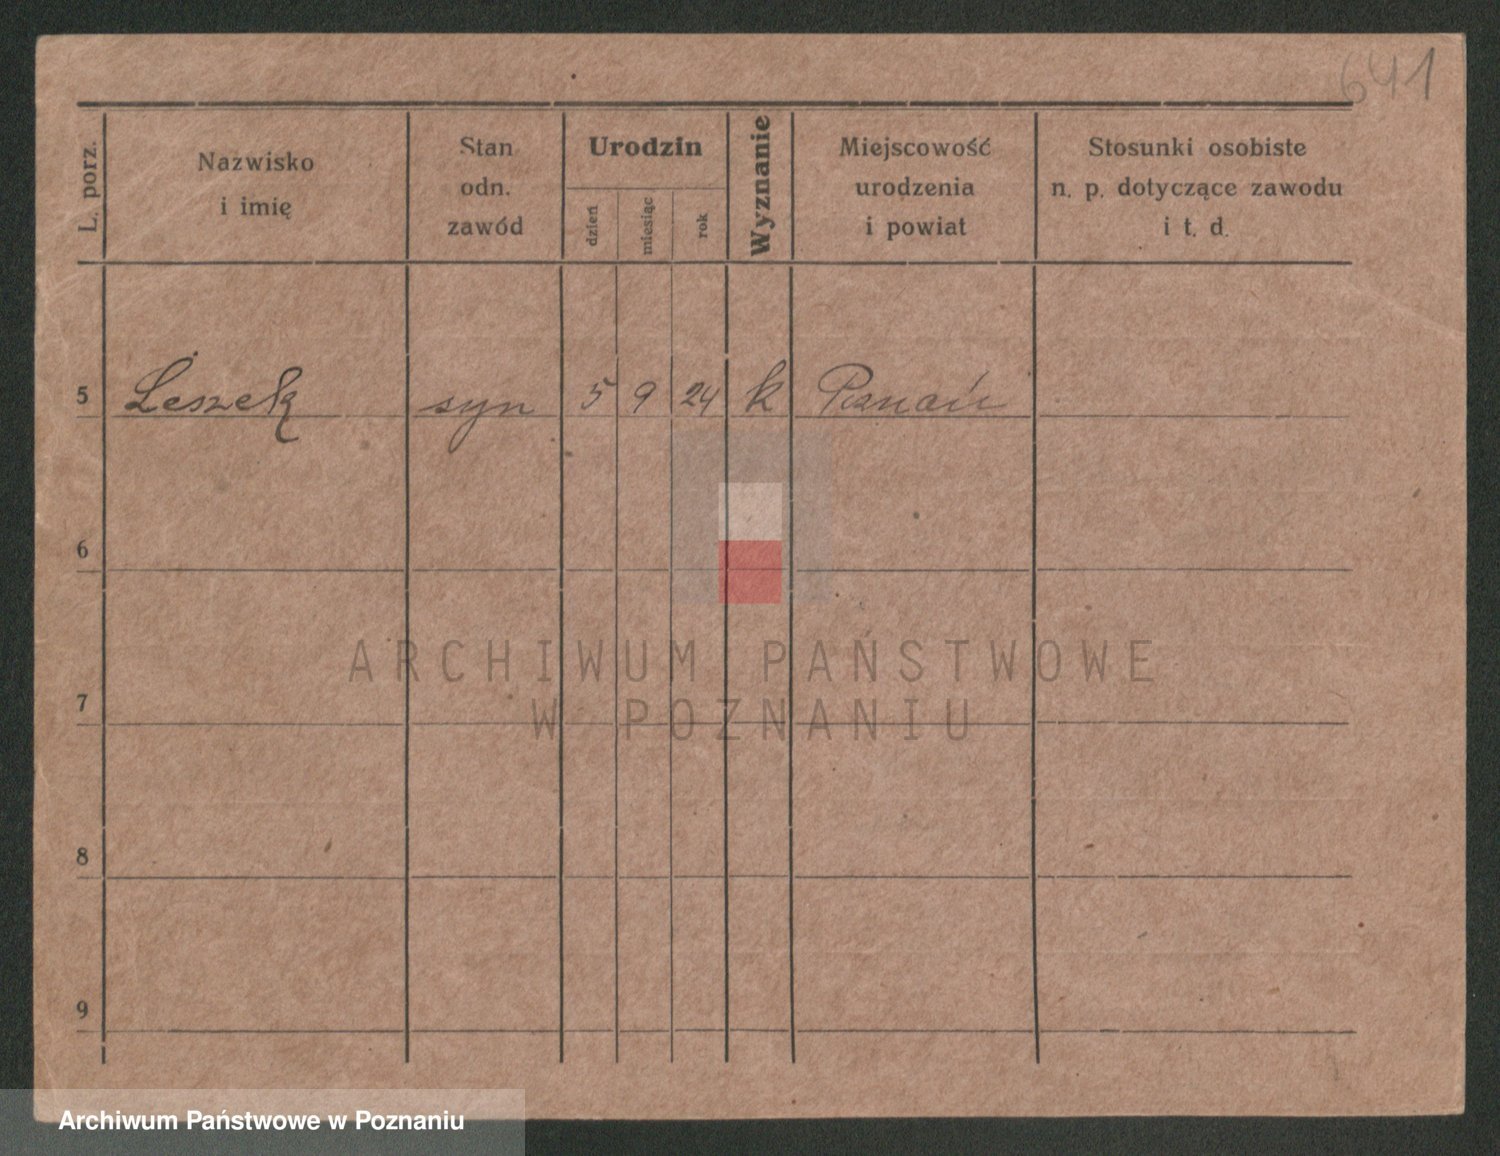 641
L. porz.
Nazwisko
i imię
Stan
odn.
zawód
Urodzin
dzień
miesiąc
rok
Wyznanie
Miejscowość
urodzenia
i powiat
Stosunki osobiste
n. p. dotyczące zawodu
i t. d.
5 Leszek syn 5 9 24 k Poznań
6
7
8
9
ARCHIWUM PAŃSTWOWE
W POZNANIU
Archiwum Państwowe w Poznaniu